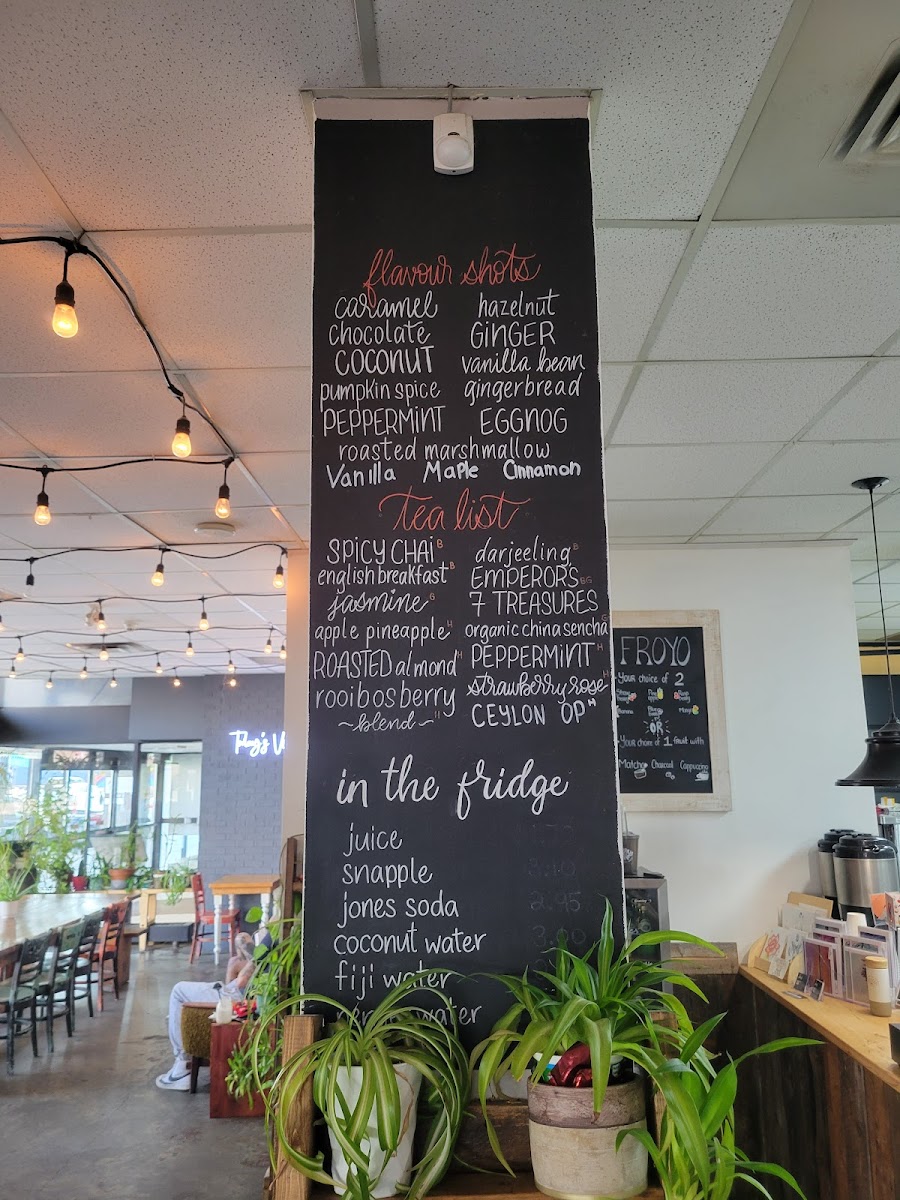 flavour shots
caramel hazelnut
chocolate GINGER
COCONUT vanilla bean
pumpkin spice gingerbread
PEPPERMINT EGGNOG
roasted marshmallow
Vanilla Maple Cinnamon
tea list
SPICY CHAI B darjeeling B
english breakfast B EMPEROR'S BG
jasmine G 7 TREASURES
apple pineapple H organic china sencha G
ROASTED almond H PEPPERMINT H
rooibos berry strawberry rose H
~blend~ H CEYLON OP H
in the fridge
juice
snapple 3.10
jones soda 2.95
coconut water
fiji water
water
FROYO
YOUR choice of 2
OR
YOUR choice of 1 fruit with
Matcha Charcoal Cappuccino